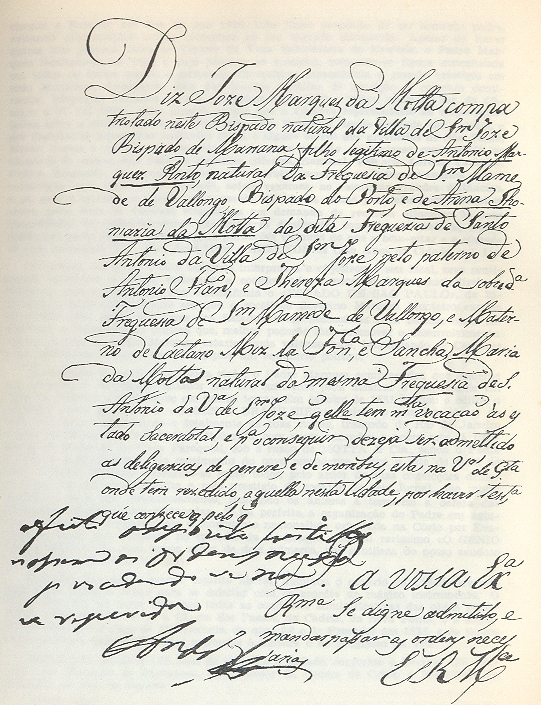 Diz Joze Marques da Motta compa
trotado neste Bispado natural da Villa de Sm Joze
Bispado de Mariana filho legitimo de Antonio Mar-
quez Pinto natural da Freguesia de Sm Mame
de de Vallongo Bispado do Porto, e de Anna Tho-
mazia da Motta da dita Freguezia de Santo
Antonio da Villa de Sm Joze neto paterno de
Antonio Frand, e Thereza Marques da sobreda
Freguesia de Sm Mamede de Vallongo, e Mater-
no de Caetano Miz da Fonca, e Sancha Maria
da Motta natural da mesma Freguesia de S.
Antonio da Va de Sm Joze q elle tem mta vocacaõ ao es
tado Sacerdotal, e pa o conseguir dezeja ser admettido
as deligencias de genere, e de moribus, esta na Va de
onde tem rezedido, aquella nesta Cidade, por haver testa
que conhece pelo q
procedendo
requerida
P. a Vossa Exa
Rma Se digne admitilo, e
mandar passar as ordens neces
sarias
E R Mce